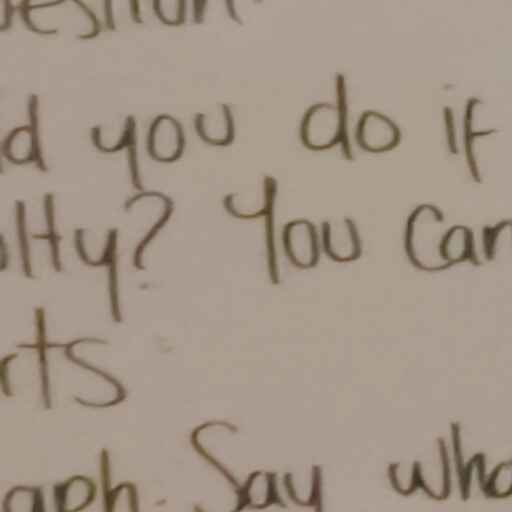 estion.
d you do if
lty? You can
rts
aph. Say wha